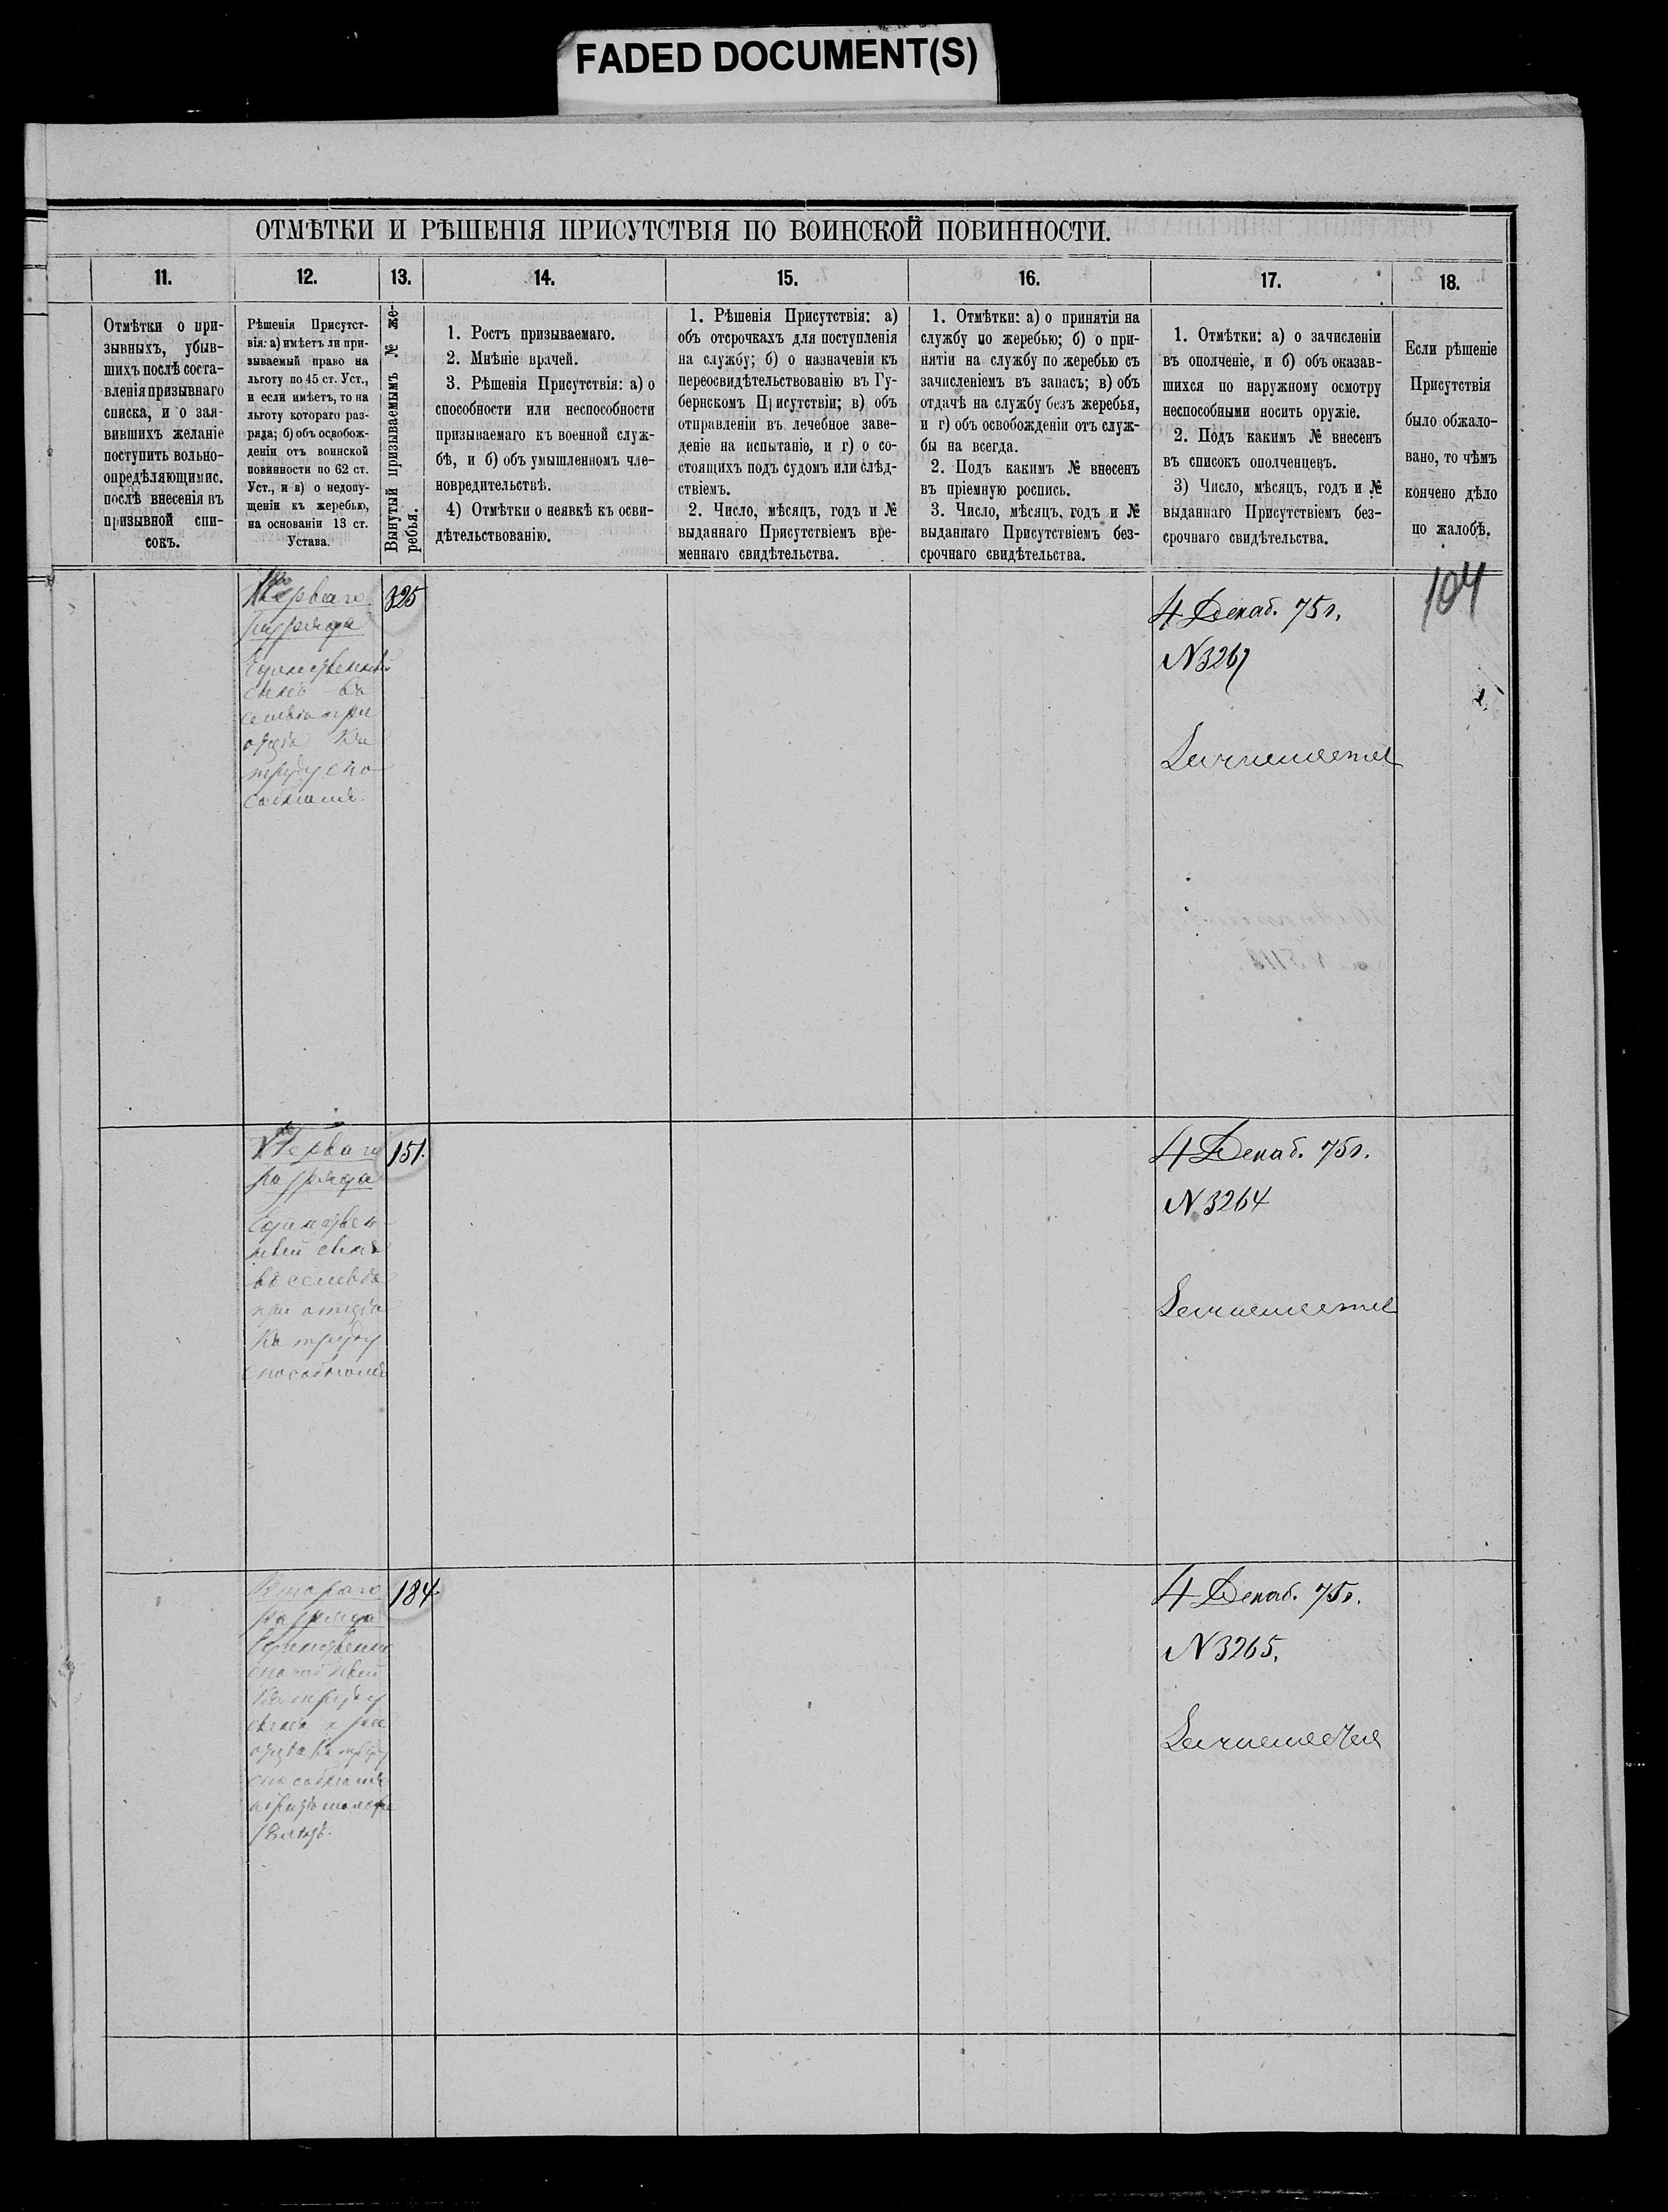 FADED DOCUMENT(S)
ОТМѢТКИ И РѢШЕНІЯ ПРИСУТСТВІЯ ПО ВОИНСКОЙ ПОВИННОСТИ.
11.
Отмѣтки о при-
зывныхъ, убыв-
шихъ послѣ соста-
вленія призывнаго
списка, и о зая-
вившихъ желаніе
поступить вольно-
опредѣляющимис.
послѣ внесенія въ
призывной спи-
сокъ.
12.
Рѣшенія Присутст-
вія: а) имѣетъ ли при-
зываемый право на
льготу по 45 ст. Уст.,
и если имѣетъ, то на
льготу котораго раз-
ряда; б) объ освобож-
деніи отъ воинской
повинности по 62 ст.
Уст., и в) о недопу-
щеніи къ жеребью,
на основаніи 13 ст.
Устава.
13.
Вынутый призываемымъ № же-
ребья.
14.
1. Ростъ призываемаго.
2. Мнѣніе врачей.
3. Рѣшенія Присутствія: а) о
способности или неспособности
призываемаго къ военной служ-
бѣ, и б) объ умышленномъ чле-
новредительствѣ.
4) Отмѣтки о неявкѣ къ осви-
дѣтельствованію.
15.
1. Рѣшенія Присутствія: а)
объ отсрочкахъ для поступленія
на службу; б) о назначеніи къ
переосвидѣтельствованію въ Гу-
бернскомъ Присутствіи; в) объ
отправленіи въ лечебное заве-
деніе на испытаніе, и г) о со-
стоящихъ подъ судомъ или слѣд-
ствіемъ.
2. Число, мѣсяцъ, годъ и №
выданнаго Присутствіемъ вре-
меннаго свидѣтельства.
16.
1. Отмѣтки: а) о принятіи на
службу по жеребью; б) о при-
нятіи на службу по жеребью съ
зачисленіемъ въ запасъ; в) объ
отдачѣ на службу безъ жеребья,
и г) объ освобожденіи отъ служ-
бы на всегда.
2. Подъ какимъ № внесенъ
въ пріемную роспись.
3. Число, мѣсяцъ, годъ и №
выданнаго Присутствіемъ без-
срочнаго свидѣтельства.
17.
1. Отмѣтки: а) о зачисленіи
въ ополченіе, и б) объ оказав-
шихся по наружному осмотру
неспособными носить оружіе.
2. Подъ какимъ № внесенъ
въ списокъ ополченцевъ.
3) Число, мѣсяцъ, годъ и №
выданнаго Присутствіемъ без-
срочнаго свидѣтельства.
18.
Если рѣшеніе
Присутствія
было обжало-
вано, то чѣмъ
кончено дѣло
по жалобѣ.
104
разряда
Единственный
сынъ въ
семьѣ при
отцѣ къ
труду спо-
собномъ.
325
4 Декаб. 75 г.
N 3267
разряда
Единствен-
ный сынъ
въ семьѣ
при отцѣ
къ труду
способномъ
151.
4 Декаб. 75 г.
N 3264
Втораго
разряда
способный
къ труду
сынъ при
отцѣ къ труду
способномъ
184
4 Декаб. 75 г.
N 3265.